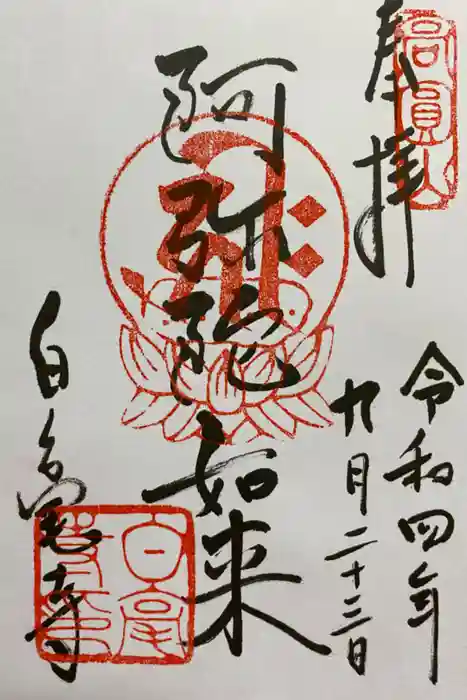 高圓山
奉拝
令和四年
九月二十三日
阿弥陀如来
白毫寺